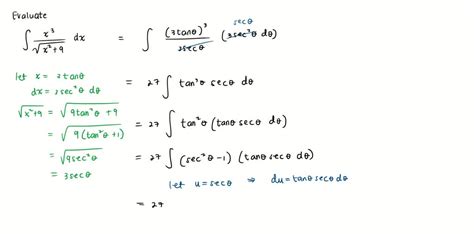 Evaluate
∫ x³/√(x²+9) dx = ∫ (3tanθ)³/3secθ (3sec²θ dθ) secθ
let x = 3tanθ
dx = 3sec²θ dθ
= 27 ∫ tan³θ secθ dθ
√(x²+9) = √(9tan²θ + 9)
= √(9(tan²θ+1))
= √(9sec²θ)
= 3secθ
= 27 ∫ tan²θ (tanθ secθ dθ)
= 27 ∫ (sec²θ-1) (tanθ secθ dθ)
let u = secθ ⇒ du = tanθ secθ dθ
= 27